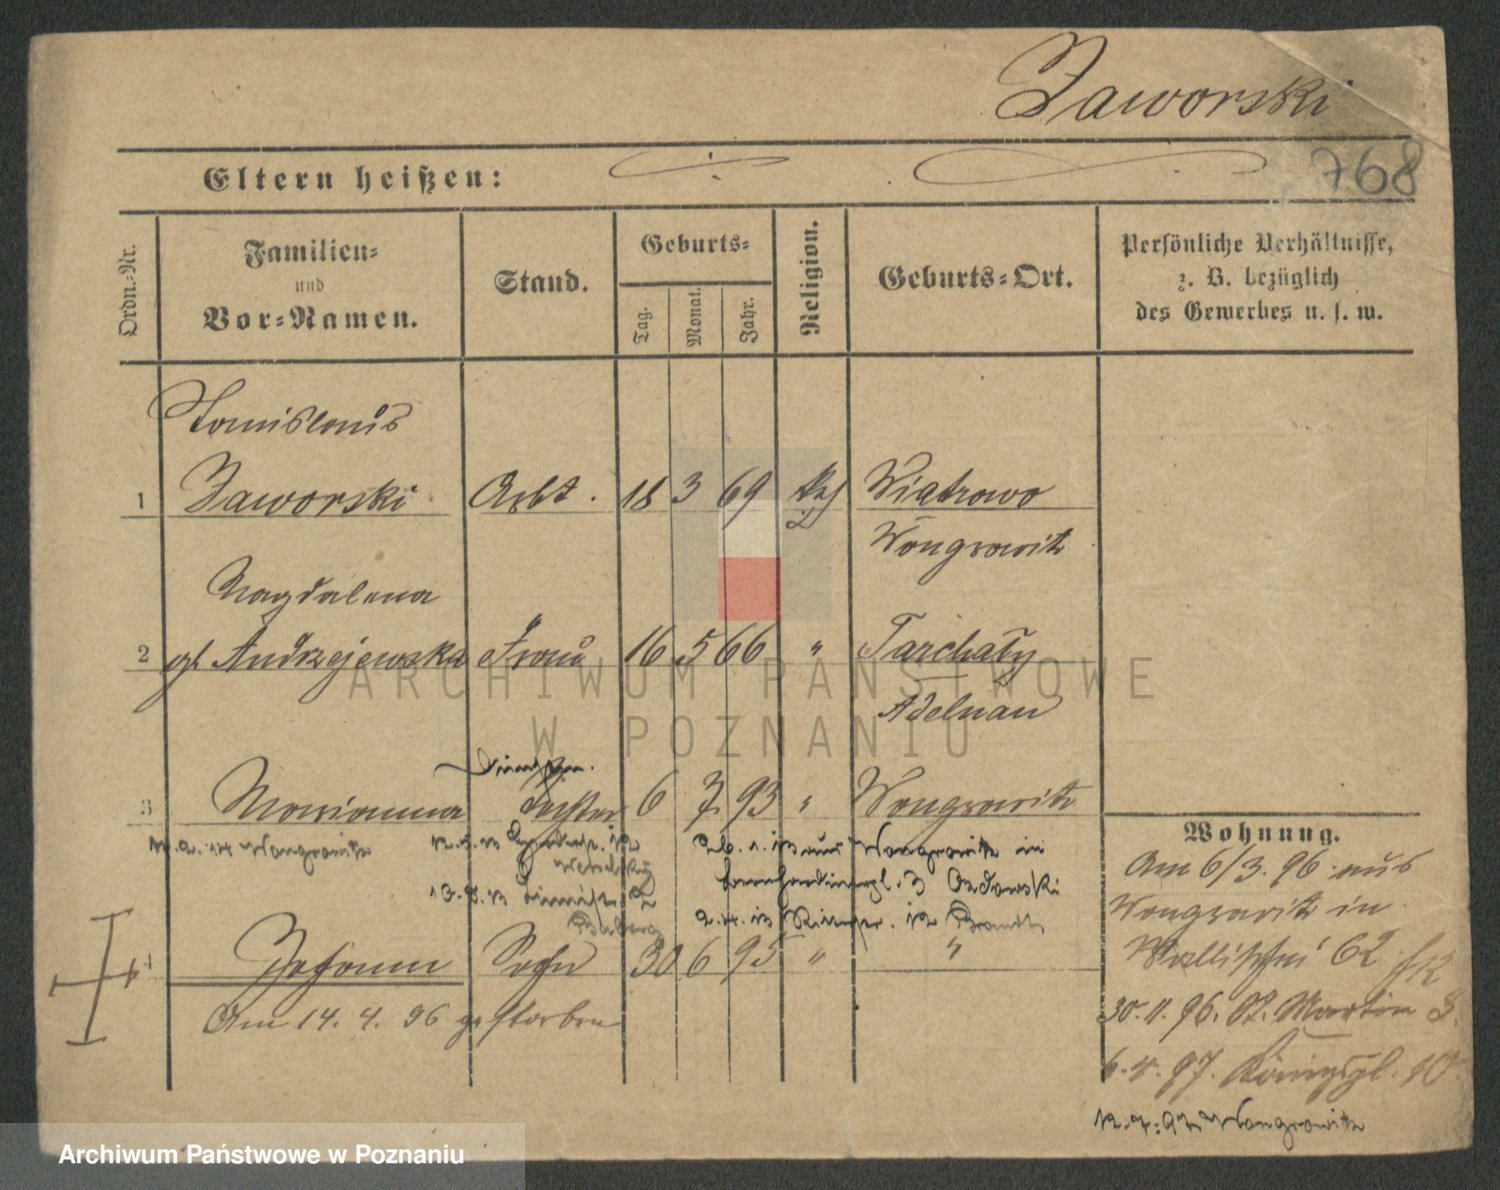 Jaworski
768
Eltern heißen:
Ordn.-Nr.
Familien-
und
Vor-Namen.
Stand.
Geburts-
Tag.
Monat.
Jahr.
Religion.
Geburts-Ort.
Persönliche Verhältnisse,
z. B. bezüglich
des Gewerbes u. s. w.
Stanislaus
1 Jaworski Arbt. 18 3 69 Wiatrowo
Wongrowitz
Magdalena
2 Andrzejewska Frau 16 5 66 " Tarchały
Adelnau
3 Marianna Tochter 6 7 93 " Wongrowitz
Wongrowitz
26. 1. 13 aus Wongrowitz in
Wohnung.
Am 6/3. 96 aus
Wongrowitz in
Wallischei 62
30. 11. 96. St. Martin 3.
6. 4. 97. Königspl. 10
Wongrowitz
4 Johann Sohn 30 6 95 " "
Am 14. 4. 96 gestorben
ARCHIWUM PAŃSTWOWE
W POZNANIU
Archiwum Państwowe w Poznaniu